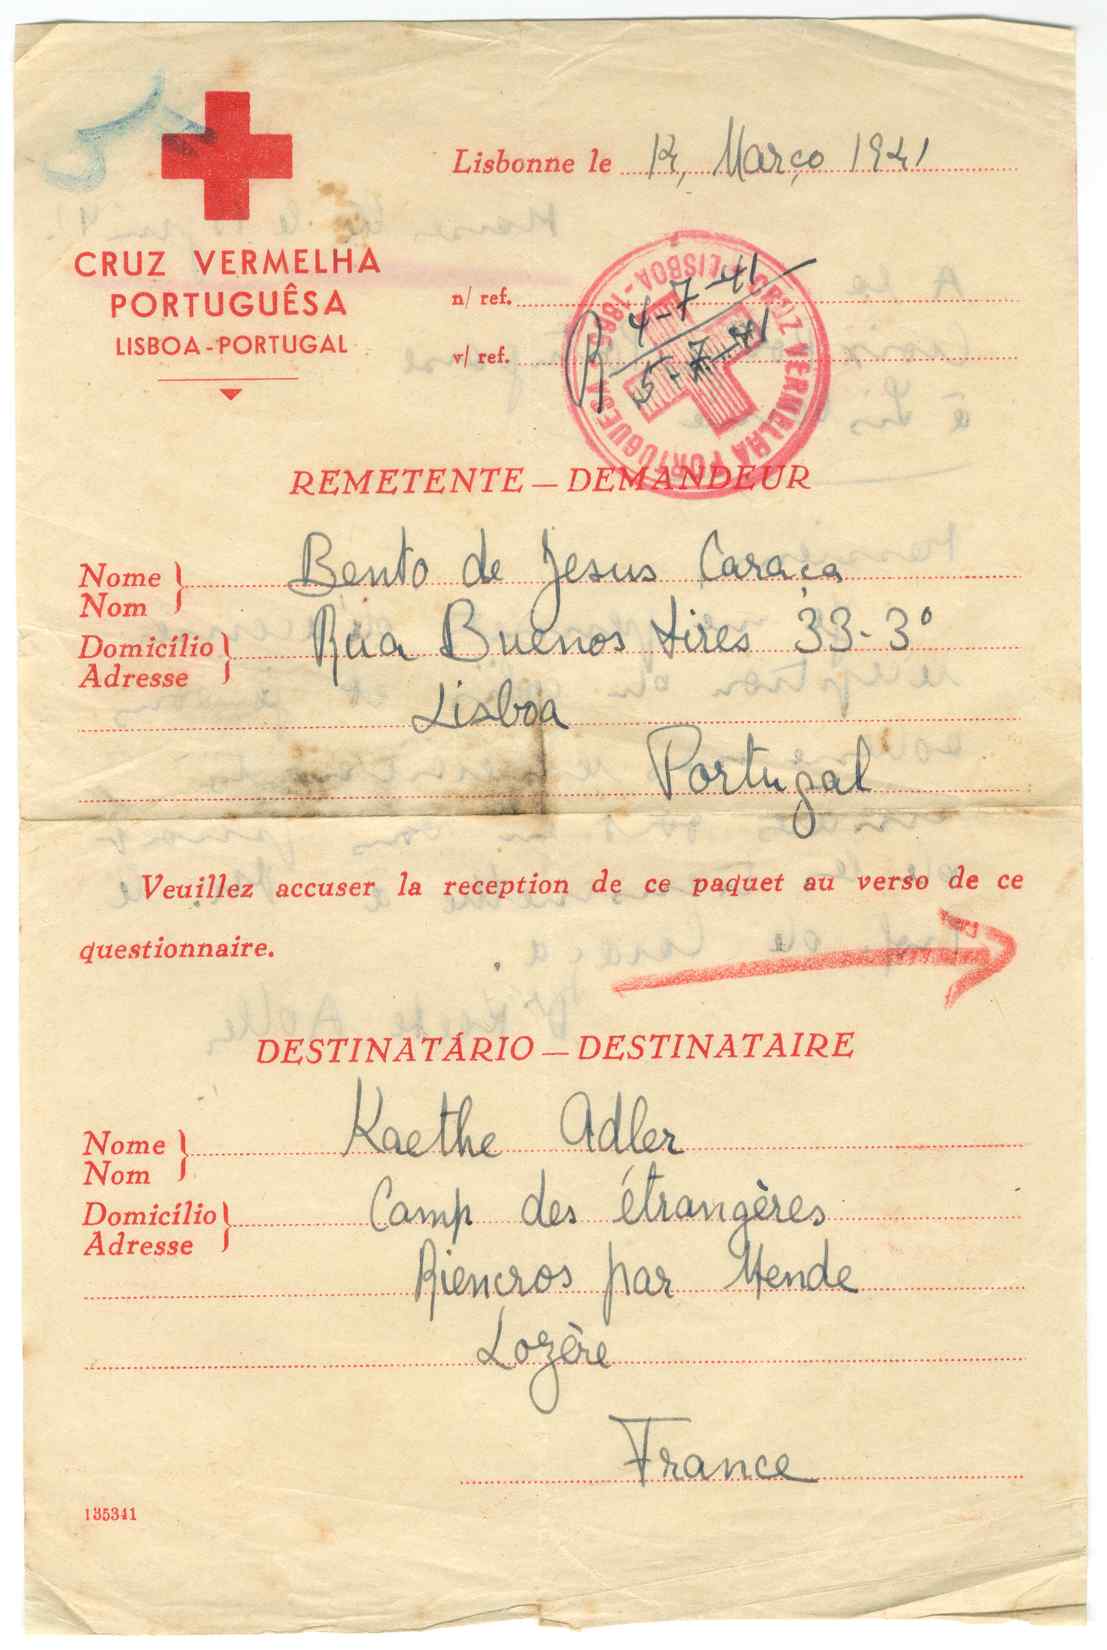 Lisbonne le 12, Março 1941
CRUZ VERMELHA
PORTUGUÊSA
LISBOA-PORTUGAL
n/ ref.
v/ ref.
R 4-7-41
5-7-41
CRUZ VERMELHA PORTUGUESA
LISBOA-1865
REMETENTE — DEMANDEUR
Nome
Nom
Bento de Jesus Caraça
Domicílio
Adresse
Rua Buenos Aires 33-3º
Lisboa
Portugal
Veuillez accuser la reception de ce paquet au verso de ce
questionnaire.
DESTINATÁRIO — DESTINATAIRE
Nome
Nom
Kaethe Adler
Domicílio
Adresse
Camp des étrangères
Riencros par Mende
Lozère
France
135341